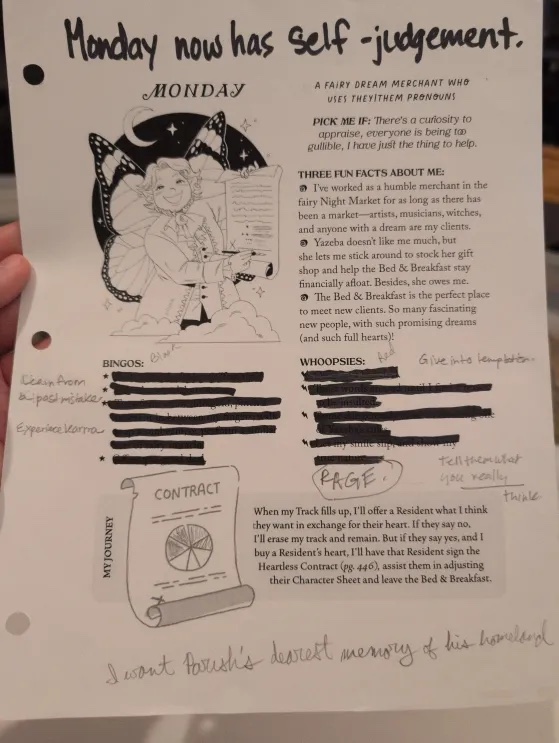 Monday now has self-judgement.
MONDAY
A FAIRY DREAM MERCHANT WHO
USES THEY/THEM PRONOUNS
PICK ME IF: There's a curiosity to
appraise, everyone is being too
gullible, I have just the thing to help.
THREE FUN FACTS ABOUT ME:
I've worked as a humble merchant in the
fairy Night Market for as long as there has
been a market—artists, musicians, witches,
and anyone with a dream are my clients.
Yazeba doesn't like me much, but
she lets me stick around to stock her gift
shop and help the Bed & Breakfast stay
financially afloat. Besides, she owes me.
The Bed & Breakfast is the perfect place
to meet new clients. So many fascinating
new people, with such promising dreams
(and such full hearts)!
BINGOS:
Learn from
a past mistake
Experience karma
WHOOPSIES:
Red
Give into temptation.
my smile slip, and show my
Tell them what
you really
think
RAGE.
MY JOURNEY
CONTRACT
When my Track fills up, I'll offer a Resident what I think
they want in exchange for their heart. If they say no,
I'll erase my track and remain. But if they say yes, and I
buy a Resident's heart, I'll have that Resident sign the
Heartless Contract (pg. 446), assist them in adjusting
their Character Sheet and leave the Bed & Breakfast.
I want Parish's dearest memory of his homeland